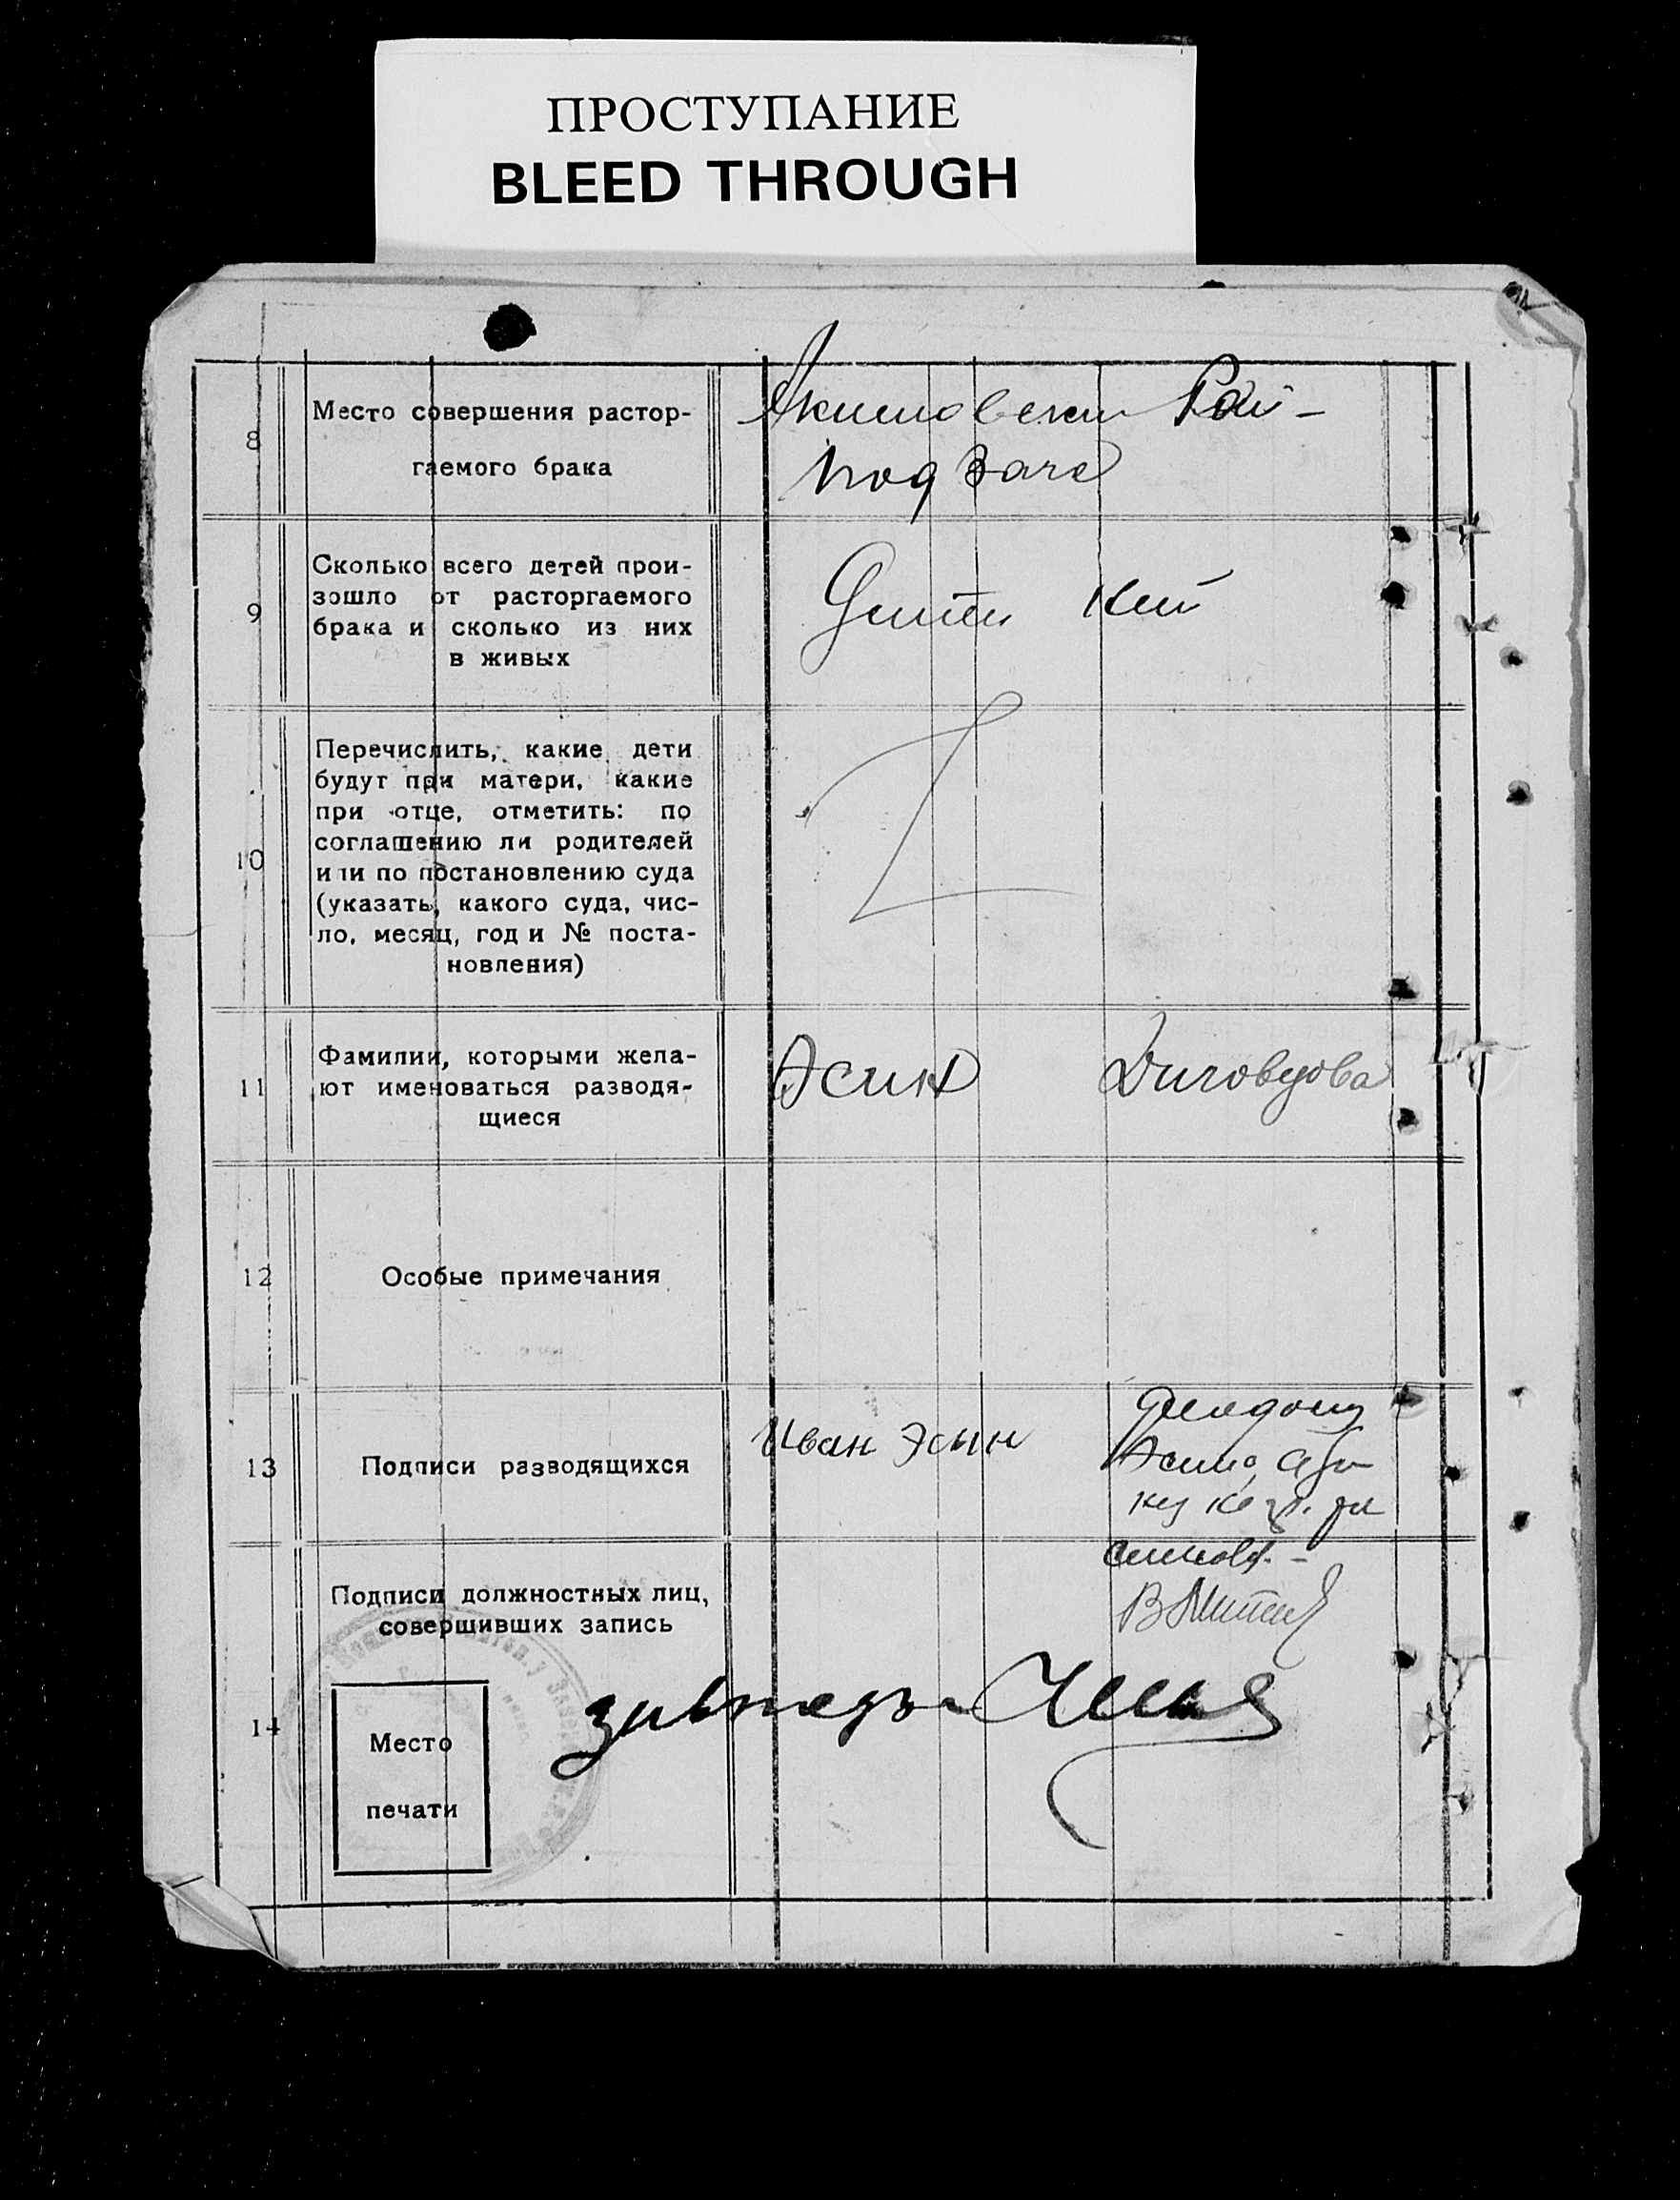 ПРОСТУПАНИЕ
BLEED THROUGH
8
Место совершения растор-
гаемого брака
Рай-
под Загс
9
Сколько всего детей прои-
зошло от расторгаемого
брака и сколько из них
в живых
10
Перечислить, какие дети
будут при матери, какие
при отце, отметить: по
соглашению ли родителей
или по постановлению суда
(указать, какого суда, чис-
ло, месяц, год и № поста-
новления)
11
Фамилии, которыми жела-
ют именоваться разводя-
щиеся
Эсин
12
Особые примечания
13
Подписи разводящихся
Иван Эсин
14
Подписи должностных лиц,
совершивших запись
Место
печати